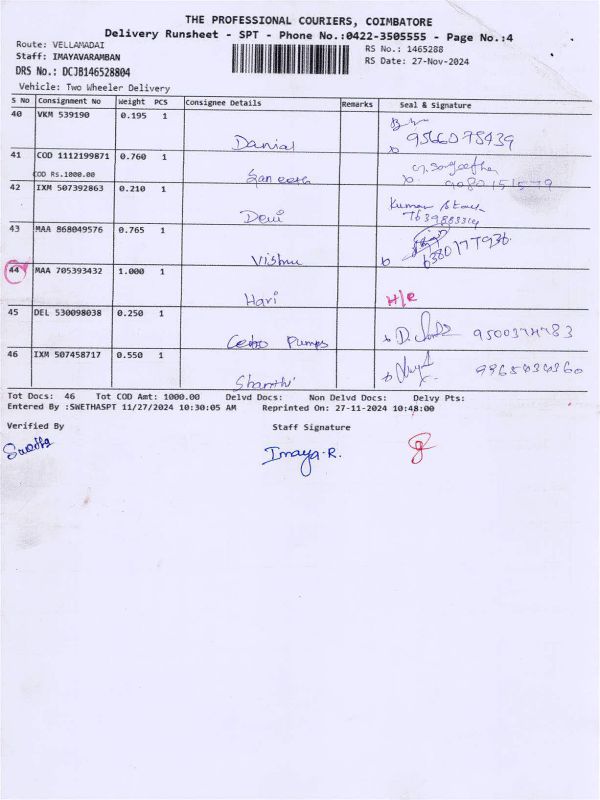 THE PROFESSIONAL COURIERS, COIMBATORE
Delivery Runsheet - SPT - Phone No.:0422-3505555 - Page No.:4
Route: VELLAMADAI
RS No.: 1465288
Staff: IMAYAVARAMBAN
RS Date: 27-Nov-2024
DRS No.: DCJB146528804
Vehicle: Two Wheeler Delivery
S No Consignment No Weight PCS Consignee Details Remarks Seal & Signature
40 VKM 539190 0.195 1
Danial 9566078439
41 COD 1112199871 0.760 1
COD Rs.1000.00
42 IXM 507392863 0.210 1
Kumar
Devi
43 MAA 868049576 0.765 1
Vishnu
44 MAA 705393432 1.000 1
Hari H/R
45 DEL 530098038 0.250 1
Pumps
46 IXM 507458717 0.550 1
Shanthi
Tot Docs: 46 Tot COD Amt: 1000.00 Delvd Docs: Non Delvd Docs: Delvy Pts:
Entered By :SWETHASPT 11/27/2024 10:30:05 AM Reprinted On: 27-11-2024 10:48:00
Verified By Staff Signature
Imaya.R.